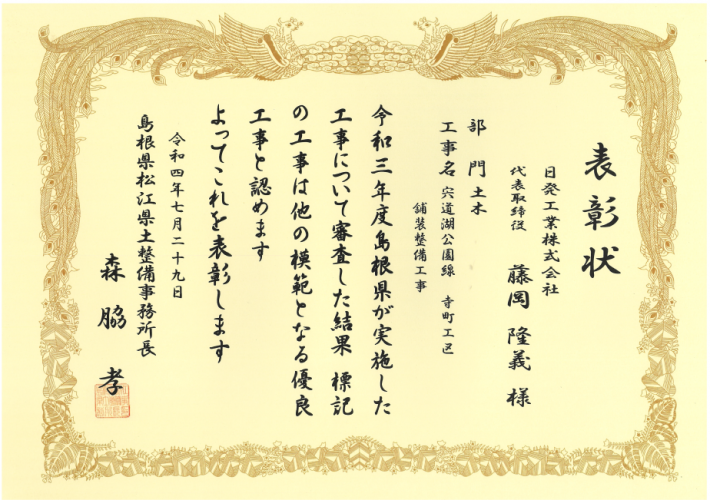 表彰状
日発工業株式会社
代表取締役 藤岡 隆義 様
部門 土木
工事名 宍道湖公園線 寺町工区
舗装整備工事
令和三年度島根県が実施した
工事について審査した結果 標記
の工事は他の模範となる優良
工事と認めます
よってこれを表彰します
令和四年七月二十九日
島根県松江県土整備事務所長
森脇 孝